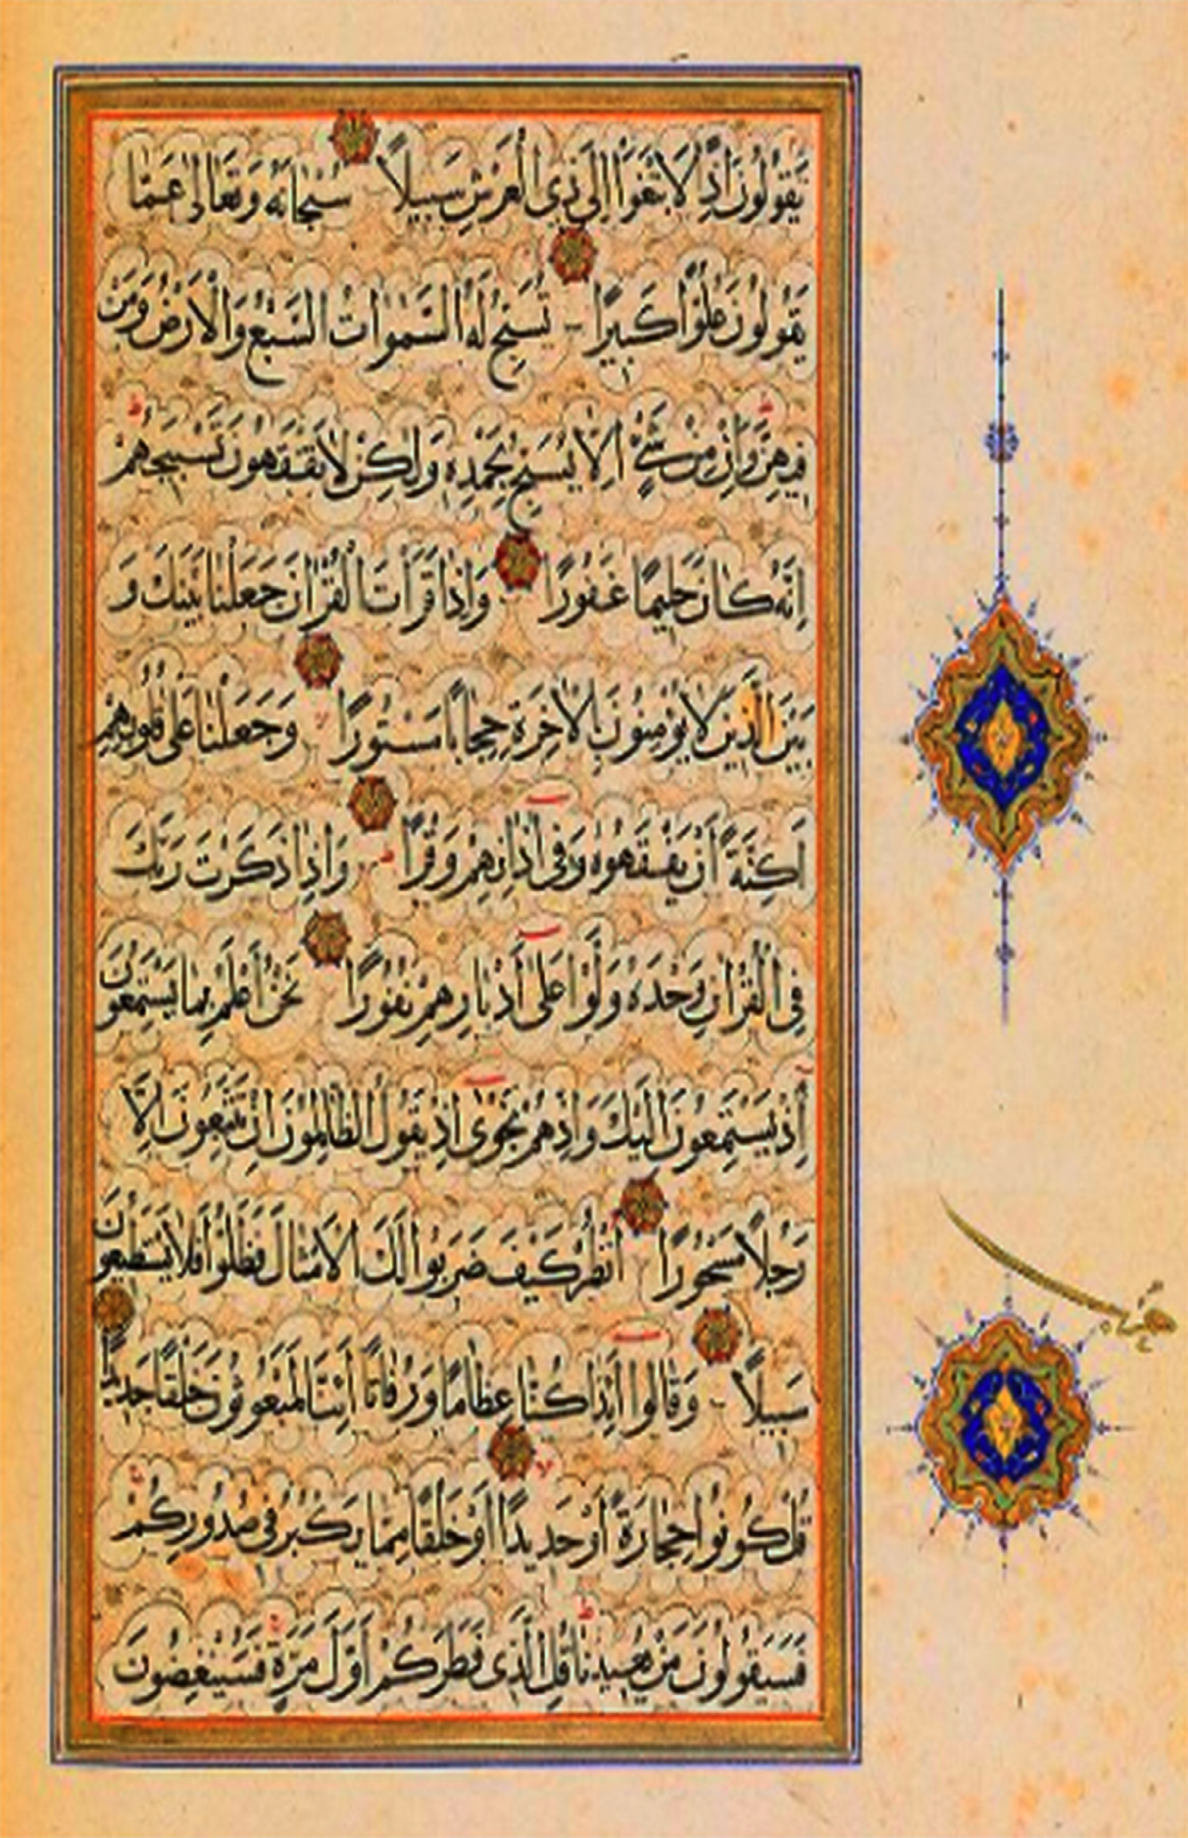 يَقُولُونَ اِذًا لَابْتَغَوْا اِلٰى ذِى الْعَرْشِ سَبِيلًا سُبْحَانَهُ وَتَعَالٰى عَمَّا
يَقُولُونَ عُلُوًّا كَبِيرًا تُسَبِّحُ لَهُ السَّمٰوَاتُ السَّبْعُ وَالْاَرْضُ وَمَنْ
فِيهِنَّ وَاِنْ مِنْ شَىْءٍ اِلَّا يُسَبِّحُ بِحَمْدِهِ وَلٰكِنْ لَا تَفْقَهُونَ تَسْبِيحَهُمْ
اِنَّهُ كَانَ حَلِيمًا غَفُورًا وَاِذَا قَرَاْتَ الْقُرْاٰنَ جَعَلْنَا بَيْنَكَ وَ
بَيْنَ الَّذِينَ لَا يُؤْمِنُونَ بِالْاٰخِرَةِ حِجَابًا مَسْتُورًا وَجَعَلْنَا عَلٰى قُلُوبِهِمْ
اَكِنَّةً اَنْ يَفْقَهُوهُ وَفِى اٰذَانِهِمْ وَقْرًا وَاِذَا ذَكَرْتَ رَبَّكَ
فِى الْقُرْاٰنِ وَحْدَهُ وَلَّوْا عَلٰى اَدْبَارِهِمْ نُفُورًا نَحْنُ اَعْلَمُ بِمَا يَسْتَمِعُونَ
اِذْ يَسْتَمِعُونَ اِلَيْكَ وَاِذْ هُمْ نَجْوٰى اِذْ يَقُولُ الظَّالِمُونَ اِنْ تَتَّبِعُونَ اِلَّا
رَجُلًا مَسْحُورًا اُنْظُرْ كَيْفَ ضَرَبُوا لَكَ الْاَمْثَالَ فَضَلُّوا فَلَا يَسْتَطِيعُونَ
سَبِيلًا وَقَالُوا اَئِذَا كُنَّا عِظَامًا وَرُفَاتًا اَئِنَّا لَمَبْعُوثُونَ خَلْقًا جَدِيدًا
قُلْ كُونُوا حِجَارَةً اَوْ حَدِيدًا اَوْ خَلْقًا مِمَّا يَكْبُرُ فِى صُدُورِكُمْ
فَسَيَقُولُونَ مَنْ يُعِيدُنَا قُلِ الَّذِى فَطَرَكُمْ اَوَّلَ مَرَّةٍ فَسَيُنْغِضُونَ